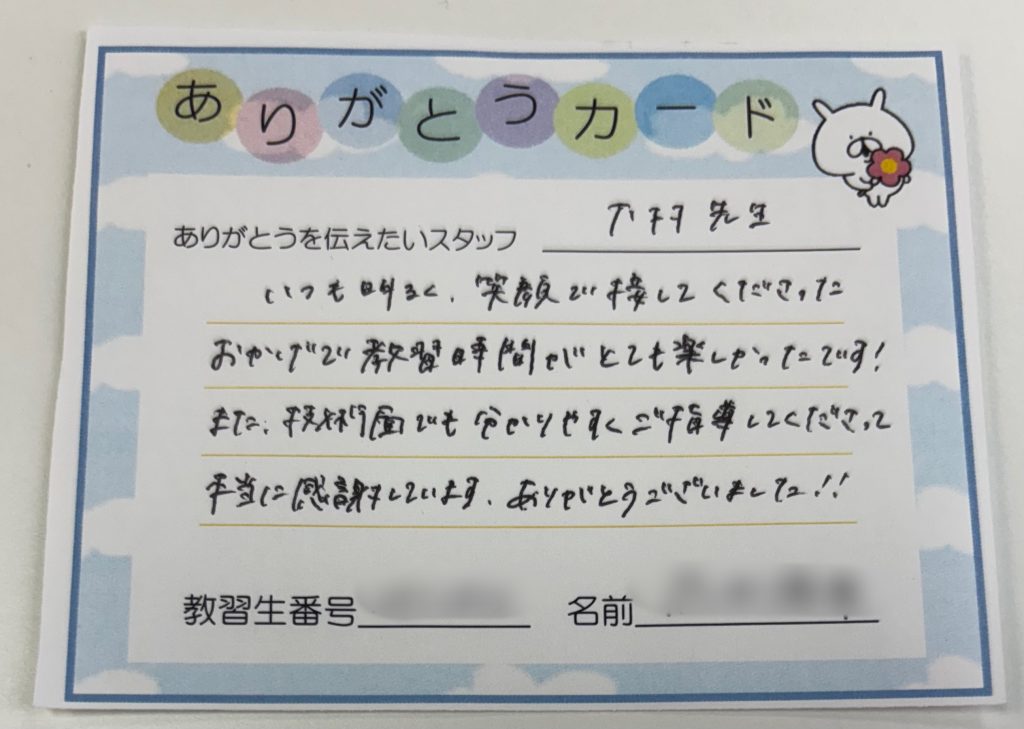 ありがとうカード
ありがとうを伝えたいスタッフ 先生
いつも明るく、笑顔で接してくださった
おかげで教習時間がとても楽しかったです!
また、技術面でも分かりやすくご指導してくださって
本当に感謝しています。ありがとうございました!!
教習生番号 名前